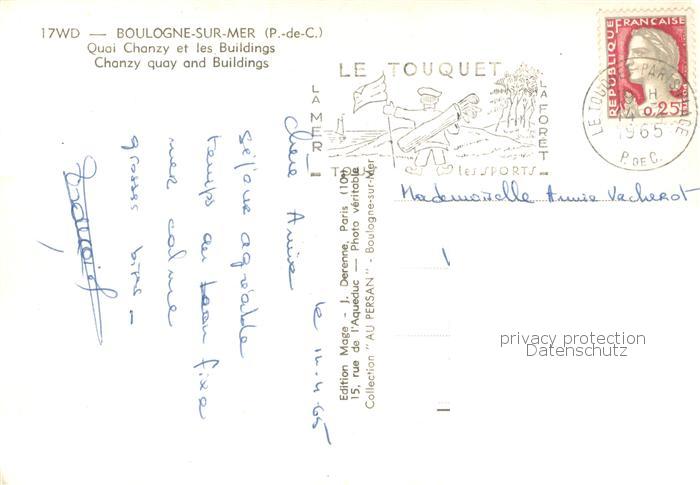 17WD — BOULOGNE-SUR-MER (P.-de-C.)
Quai Chanzy et les Buildings
Chanzy quay and Buildings
LE TOUQUET
LA MER
LA FORET
TOUS
les SPORTS
RÉPUBLIQUE FRANÇAISE
0,25
LE TOUQUET-PARIS-PLAGE
19 H
14-4
1965
P. DE C.
Mademoiselle Annie Vacherot
Edition Mage - J. Derenne, Paris (10e)
15, rue de l'Aqueduc — Photo véritable
Collection "AU PERSAN" - Boulogne-sur-Mer
le 14.4.65
Chère Annie
séjour agréable
temps au beau fixe
mer calme
grosses bises -
privacy protection
Datenschutz